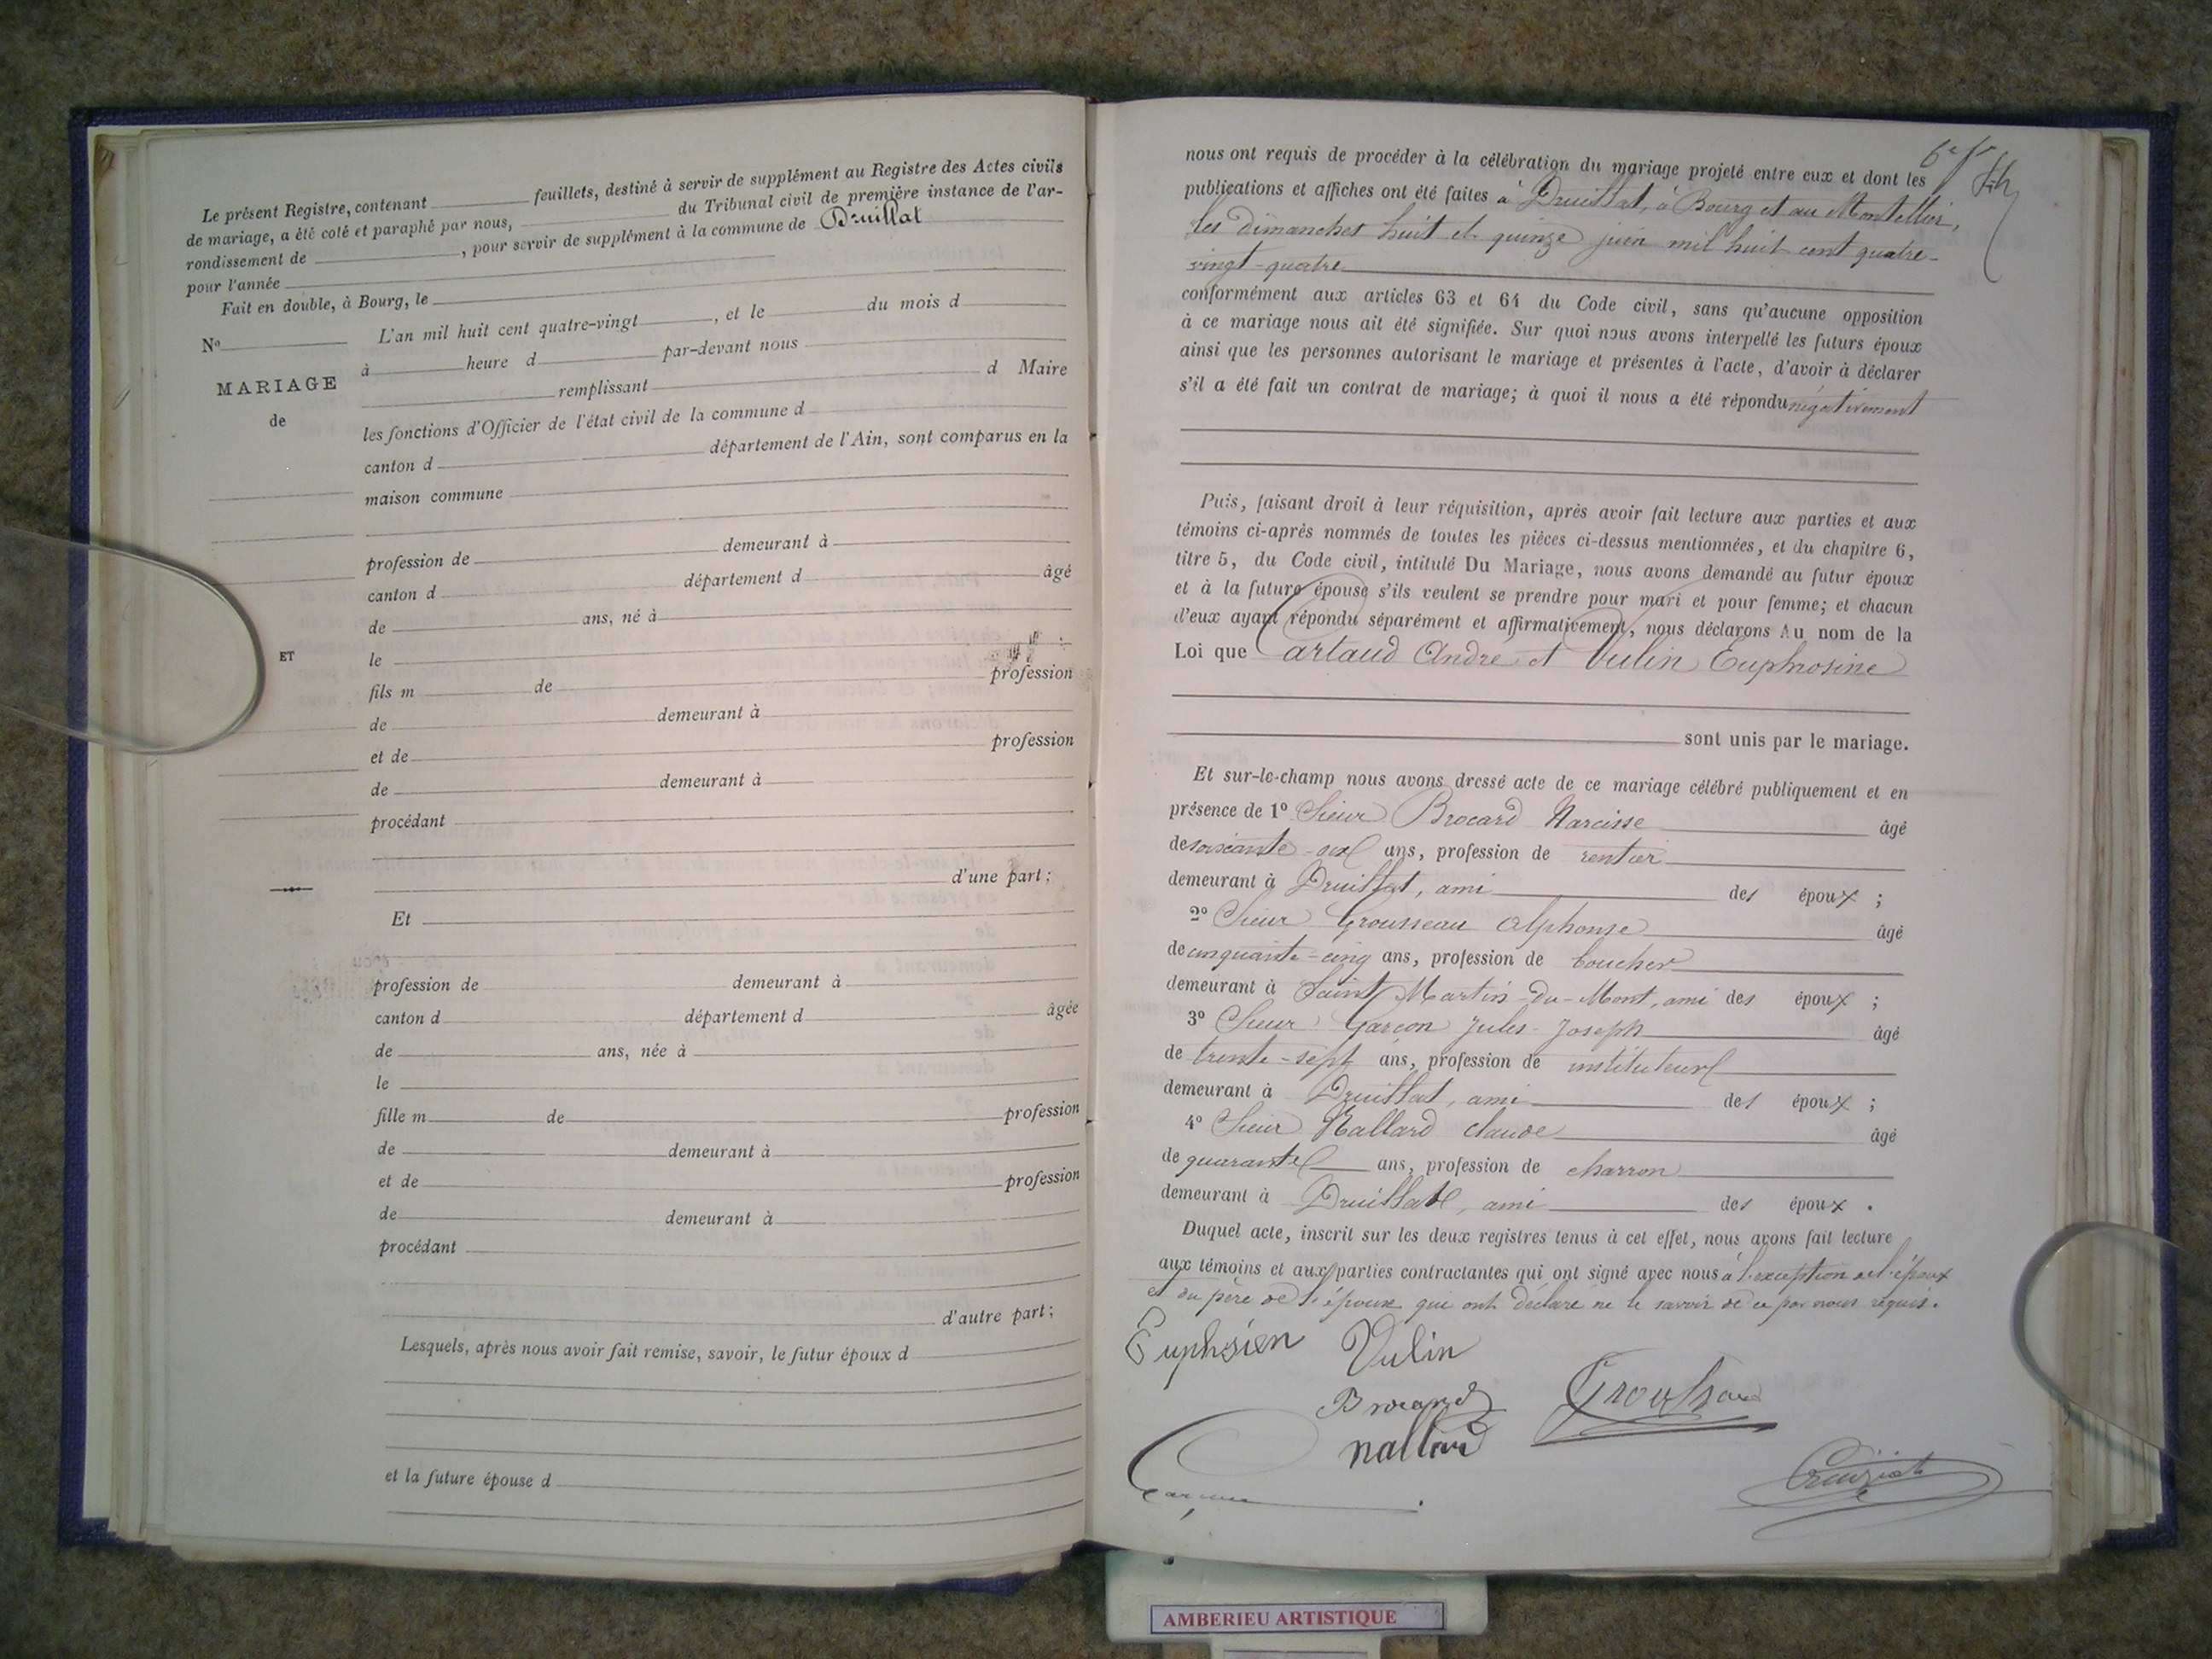 Le présent Registre, contenant feuillets, destiné à servir de supplément au Registre des Actes civils
de mariage, a été coté et paraphé par nous, du Tribunal civil de première instance de l'ar-
rondissement de , pour servir de supplément à la commune de Druillat
pour l'année
Fait en double, à Bourg, le
No
MARIAGE
de
ET
L'an mil huit cent quatre-vingt , et le du mois d
à heure d par-devant nous
remplissant d Maire
les fonctions d'Officier de l'état civil de la commune d
canton d département de l'Ain, sont comparus en la
maison commune
profession de demeurant à
canton d département d âgé
de ans, né à
le
fils m de profession
de demeurant à
et de profession
de demeurant à
procédant
d'une part;
Et
profession de demeurant à
canton d département d âgée
de ans, née à
le
fille m de profession
de demeurant à
et de profession
de demeurant à
procédant
d'autre part;
Lesquels, après nous avoir fait remise, savoir, le futur époux d
et la future épouse d
nous ont requis de procéder à la célébration du mariage projeté entre eux et dont les
publications et affiches ont été faites à Druillat, à Bourg et au Montellier,
les dimanches huit et quinze juin mil huit cent quatre-
vingt-quatre
conformément aux articles 63 et 64 du Code civil, sans qu'aucune opposition
à ce mariage nous ait été signifiée. Sur quoi nous avons interpellé les futurs époux
ainsi que les personnes autorisant le mariage et présentes à l'acte, d'avoir à déclarer
s'il a été fait un contrat de mariage; à quoi il nous a été répondu négativement
Puis, faisant droit à leur réquisition, après avoir fait lecture aux parties et aux
témoins ci-après nommés de toutes les pièces ci-dessus mentionnées, et du chapitre 6,
titre 5, du Code civil, intitulé Du Mariage, nous avons demandé au futur époux
et à la future épouse s'ils veulent se prendre pour mari et pour femme; et chacun
d'eux ayant répondu séparément et affirmativement, nous déclarons Au nom de la
Loi que Cartaud André et Vulin Euphrosine
sont unis par le mariage.
Et sur-le-champ nous avons dressé acte de ce mariage célébré publiquement et en
présence de 1o Sieur Brocard Narcisse âgé
de soixante-six ans, profession de rentier
demeurant à Druillat, ami des époux ;
2o Sieur Grousseau Alphonse âgé
de cinquante-cinq ans, profession de boucher
demeurant à Saint Martin-du-Mont, ami des époux ;
3o Sieur Garçon Jules-Joseph âgé
de trente-sept ans, profession de instituteur
demeurant à Druillat, ami des époux ;
4o Sieur Nallard Claude âgé
de quarante ans, profession de charron
demeurant à Druillat, ami des époux .
Duquel acte, inscrit sur les deux registres tenus à cet effet, nous avons fait lecture
aux témoins et aux parties contractantes qui ont signé avec nous à l'exception de l'époux
et du père de l'épouse qui ont déclaré ne le savoir de ce par nous requis.
Euphsien Vulin
Brocard
nallard
AMBERIEU ARTISTIQUE